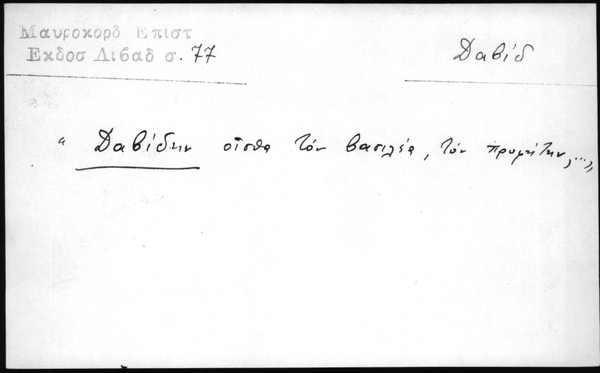 Μαυροκορδ Επιστ
Εκδοσ Λιβαδ σ. 77
Δαβίδ
" Δαβίδην οἶσθα τὸν βασιλέα, τὸν προφήτην,..."